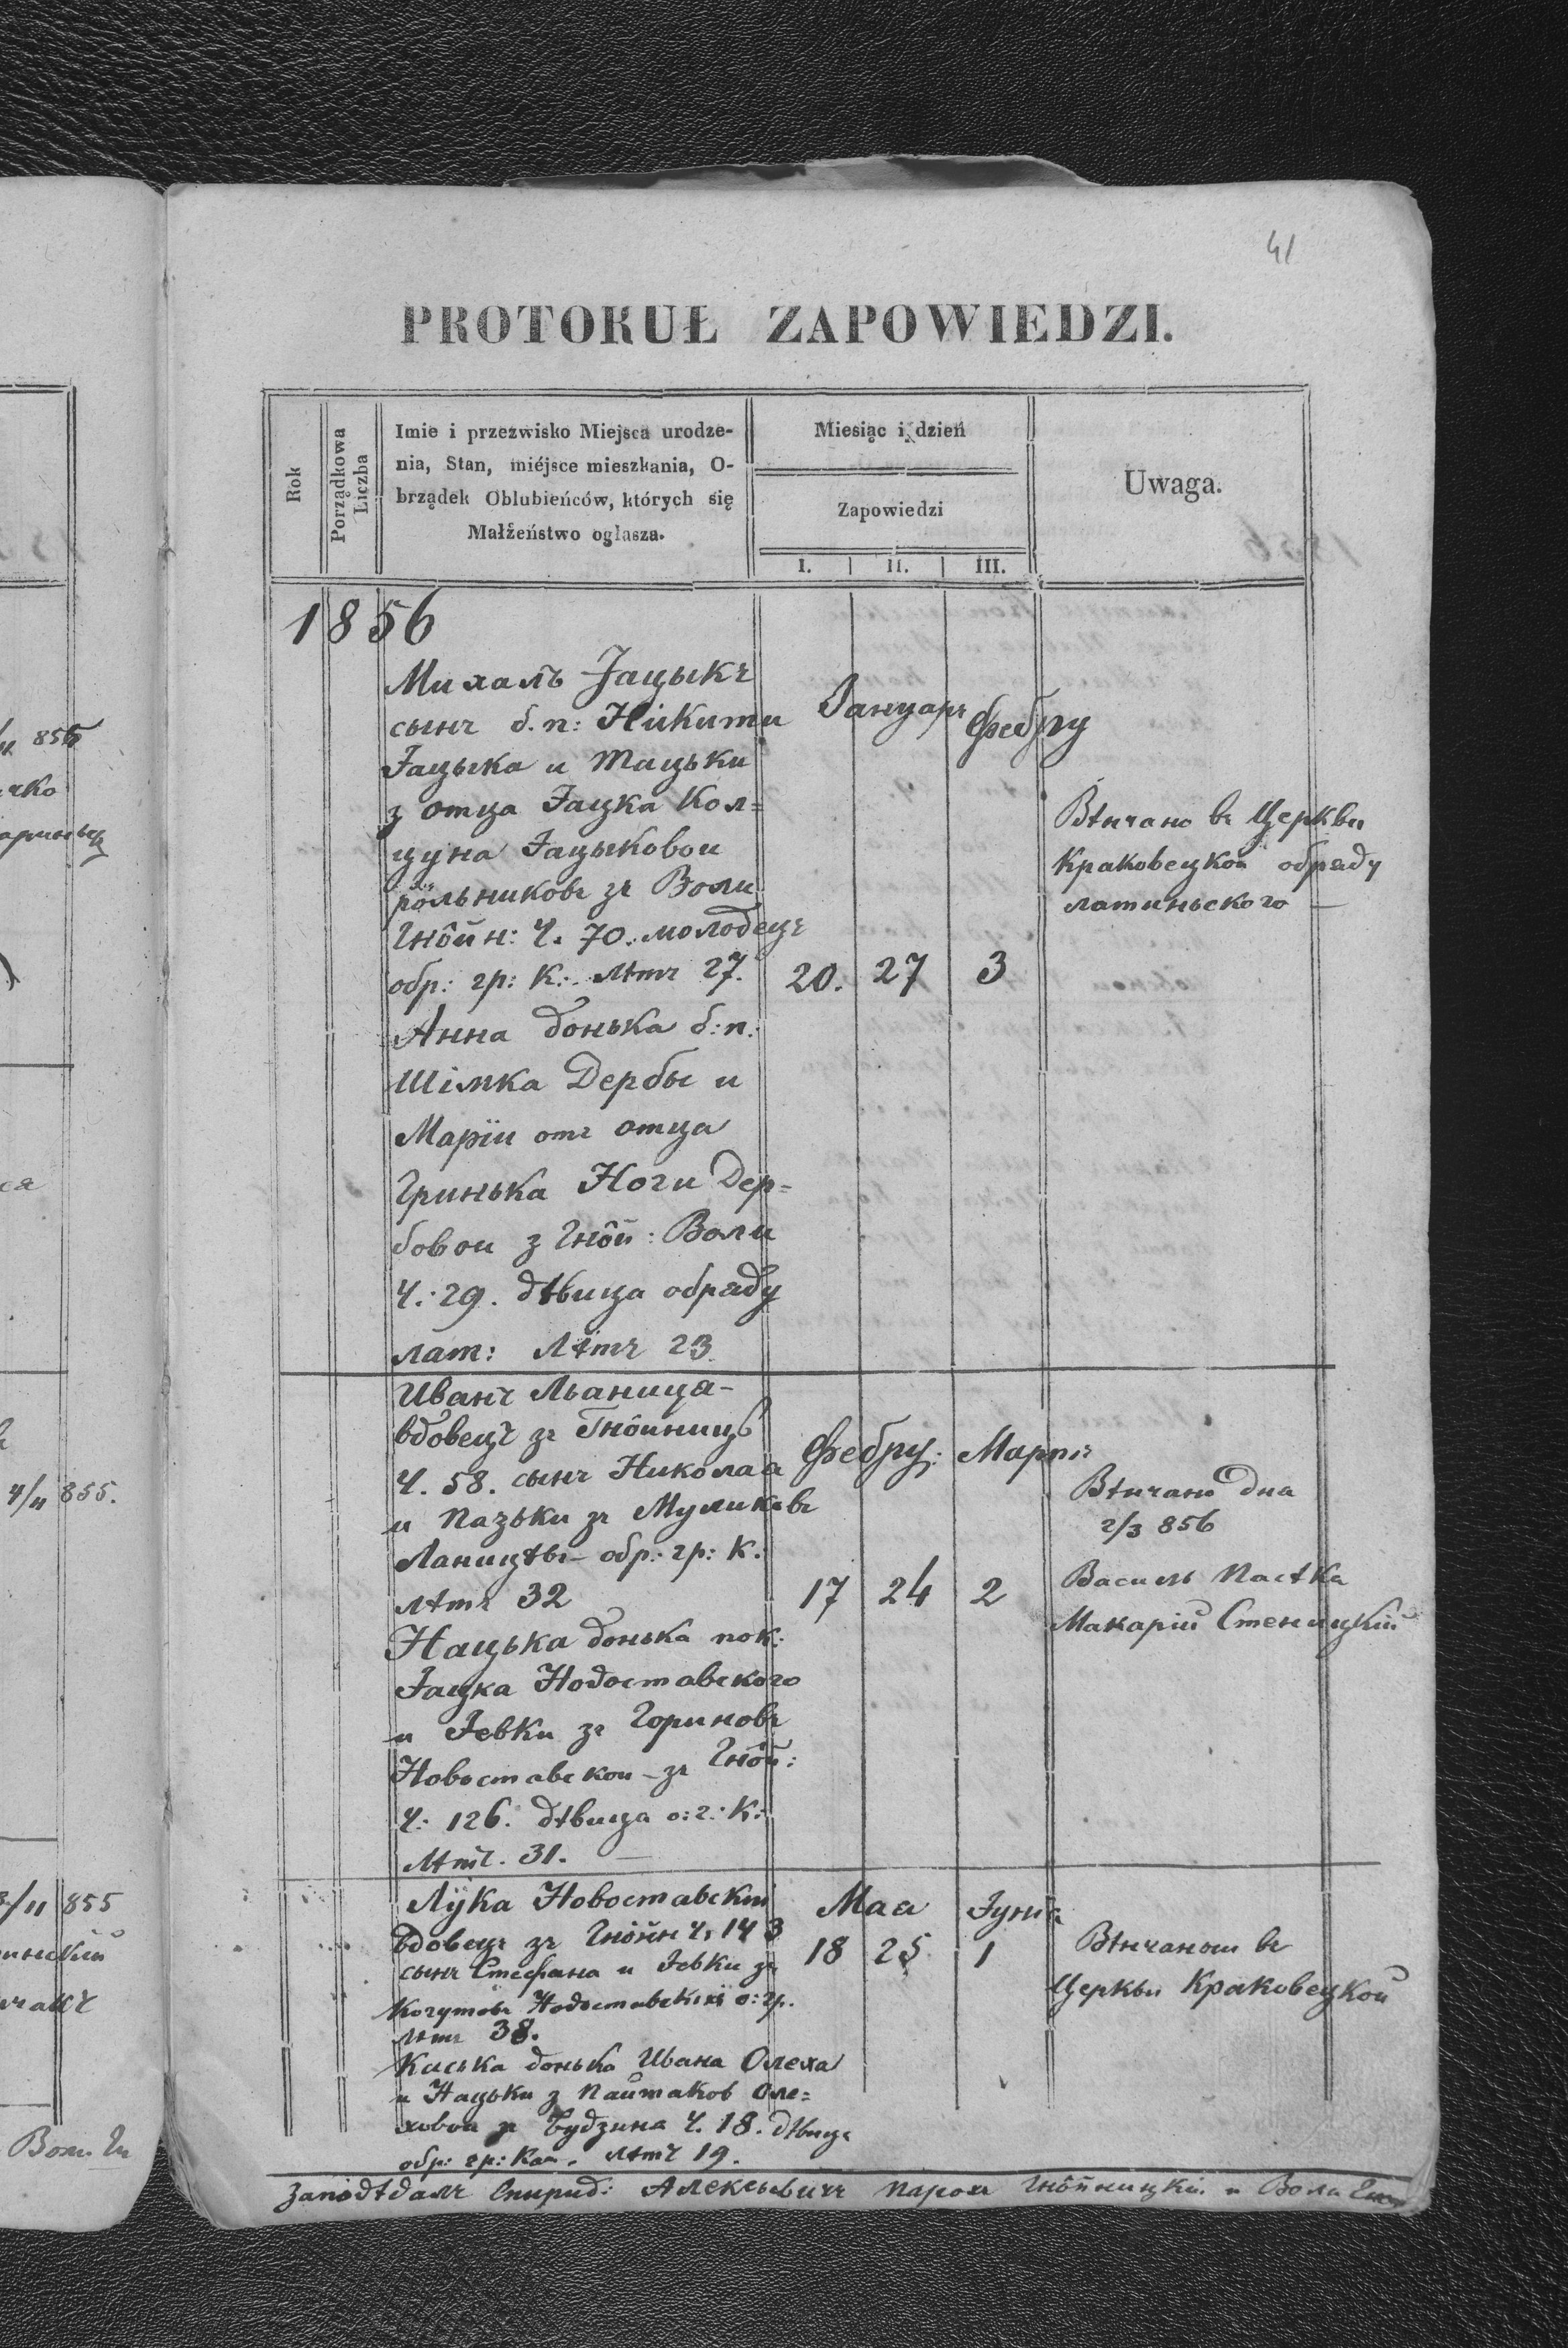 41
PROTOKUŁ ZAPOWIEDZI.
Rok
Porządkowa Liczba
Imie i przezwisko Miejsca urodze-
nia, Stan, miéjsce mieszkania, O-
brządek Oblubieńców, których się
Małżeństwo ogłasza.
Miesiąc i dzień
Zapowiedzi
I. II. III.
Uwaga.
1856
Михалъ Јацыкъ
сынъ б.п: Никити
Јацыка и Мацьки
з отца Јацка Кол=
цуна Јацыковои
рôльниковъ зъ Воли
Гнôйн: Ч. 70. молодецъ
обр: гр: К: лѣтъ 27.
Анна донька б:п:
Шімка Дербы и
Маріи отъ отца
Гринька Ноги Дер=
бовои з Гнôй: Воли
Ч: 29. дѣвица обряду
лат: лѣтъ 23
Јануаръ Фебру
20. 27 3
Вѣнчано въ Церкви
Краковецкой обряду
латиньского —
Иванъ Льаница-
вдовецъ зъ Гнôйниць
Ч. 58. сынъ Николаа
и Пазьки зъ Муликовъ
Ланицѣвъ- обр: гр: К:
лѣтъ 32
Нацька донька пок:
Јацка Новоставского
и Јевки зъ Гориновъ
Новоставскои - зъ Гнôй:
Ч: 126. дѣвица о: г: К:
лѣтъ. 31. —
Фебру: Мартъ
17 24 2
Вѣнчано дна
2/3 856
Василь Пасѣка
Макарій Стеницкій
Лука Новоставскій
вдовецъ зъ Гнôйн Ч. 143
сынъ Стефана и Јевки зъ
Когутовъ Новоставскіхъ о: гр.
лѣтъ 38.
Каська донька Ивана Олеха
и Нацьки з Пайтаков Оле=
ховои зъ Будзина Ч. 18. дѣвица
обр: гр: Кат. лѣтъ 19.
Маа Јуніа
18 25 1
Вѣнчаном въ
Церкви Краковецкой
Заповѣдалъ Спирид: Алексѣвичъ Парохъ Гнôйницкій и Воли